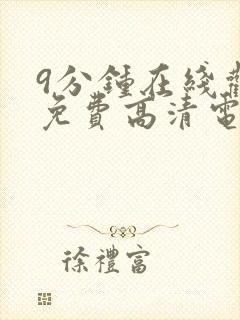 9分鍾在綫觀
免費高清電
徐禮富